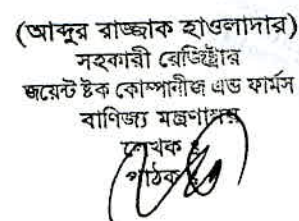 (আব্দুর রাজ্জাক হাওলাদার)
সহকারী রেজিষ্ট্রার
জয়েন্ট ষ্টক কোম্পানীজ এন্ড ফার্মস
বাণিজ্য মন্ত্রণালয়
লেখক ঃ
পাঠক ঃ